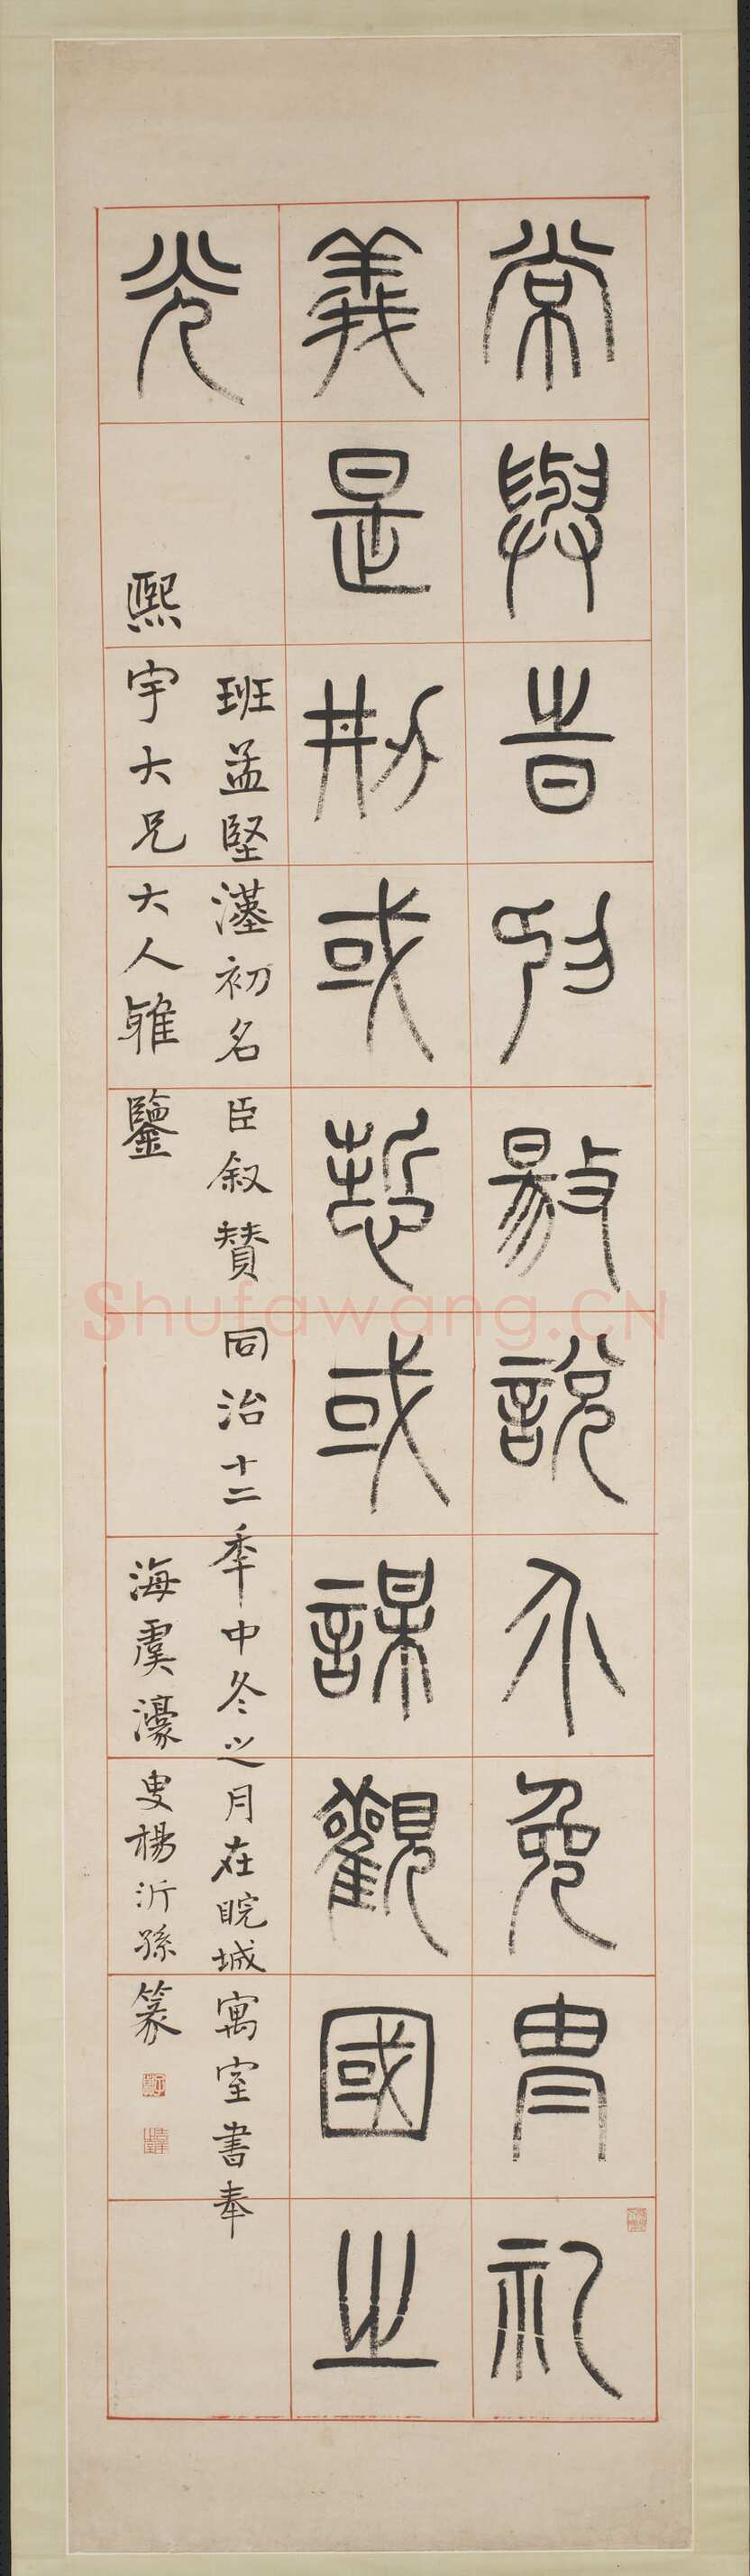 常與旹抑敭說介免胄礼
義是刱或悊或謀觀國之
光
班孟堅漢初名臣叙賛同治十二秊中冬之月在睆城寓室書奉
熙宇大兄大人雅鑒
海虞濠叟楊沂孫篆
Shufawang.CN